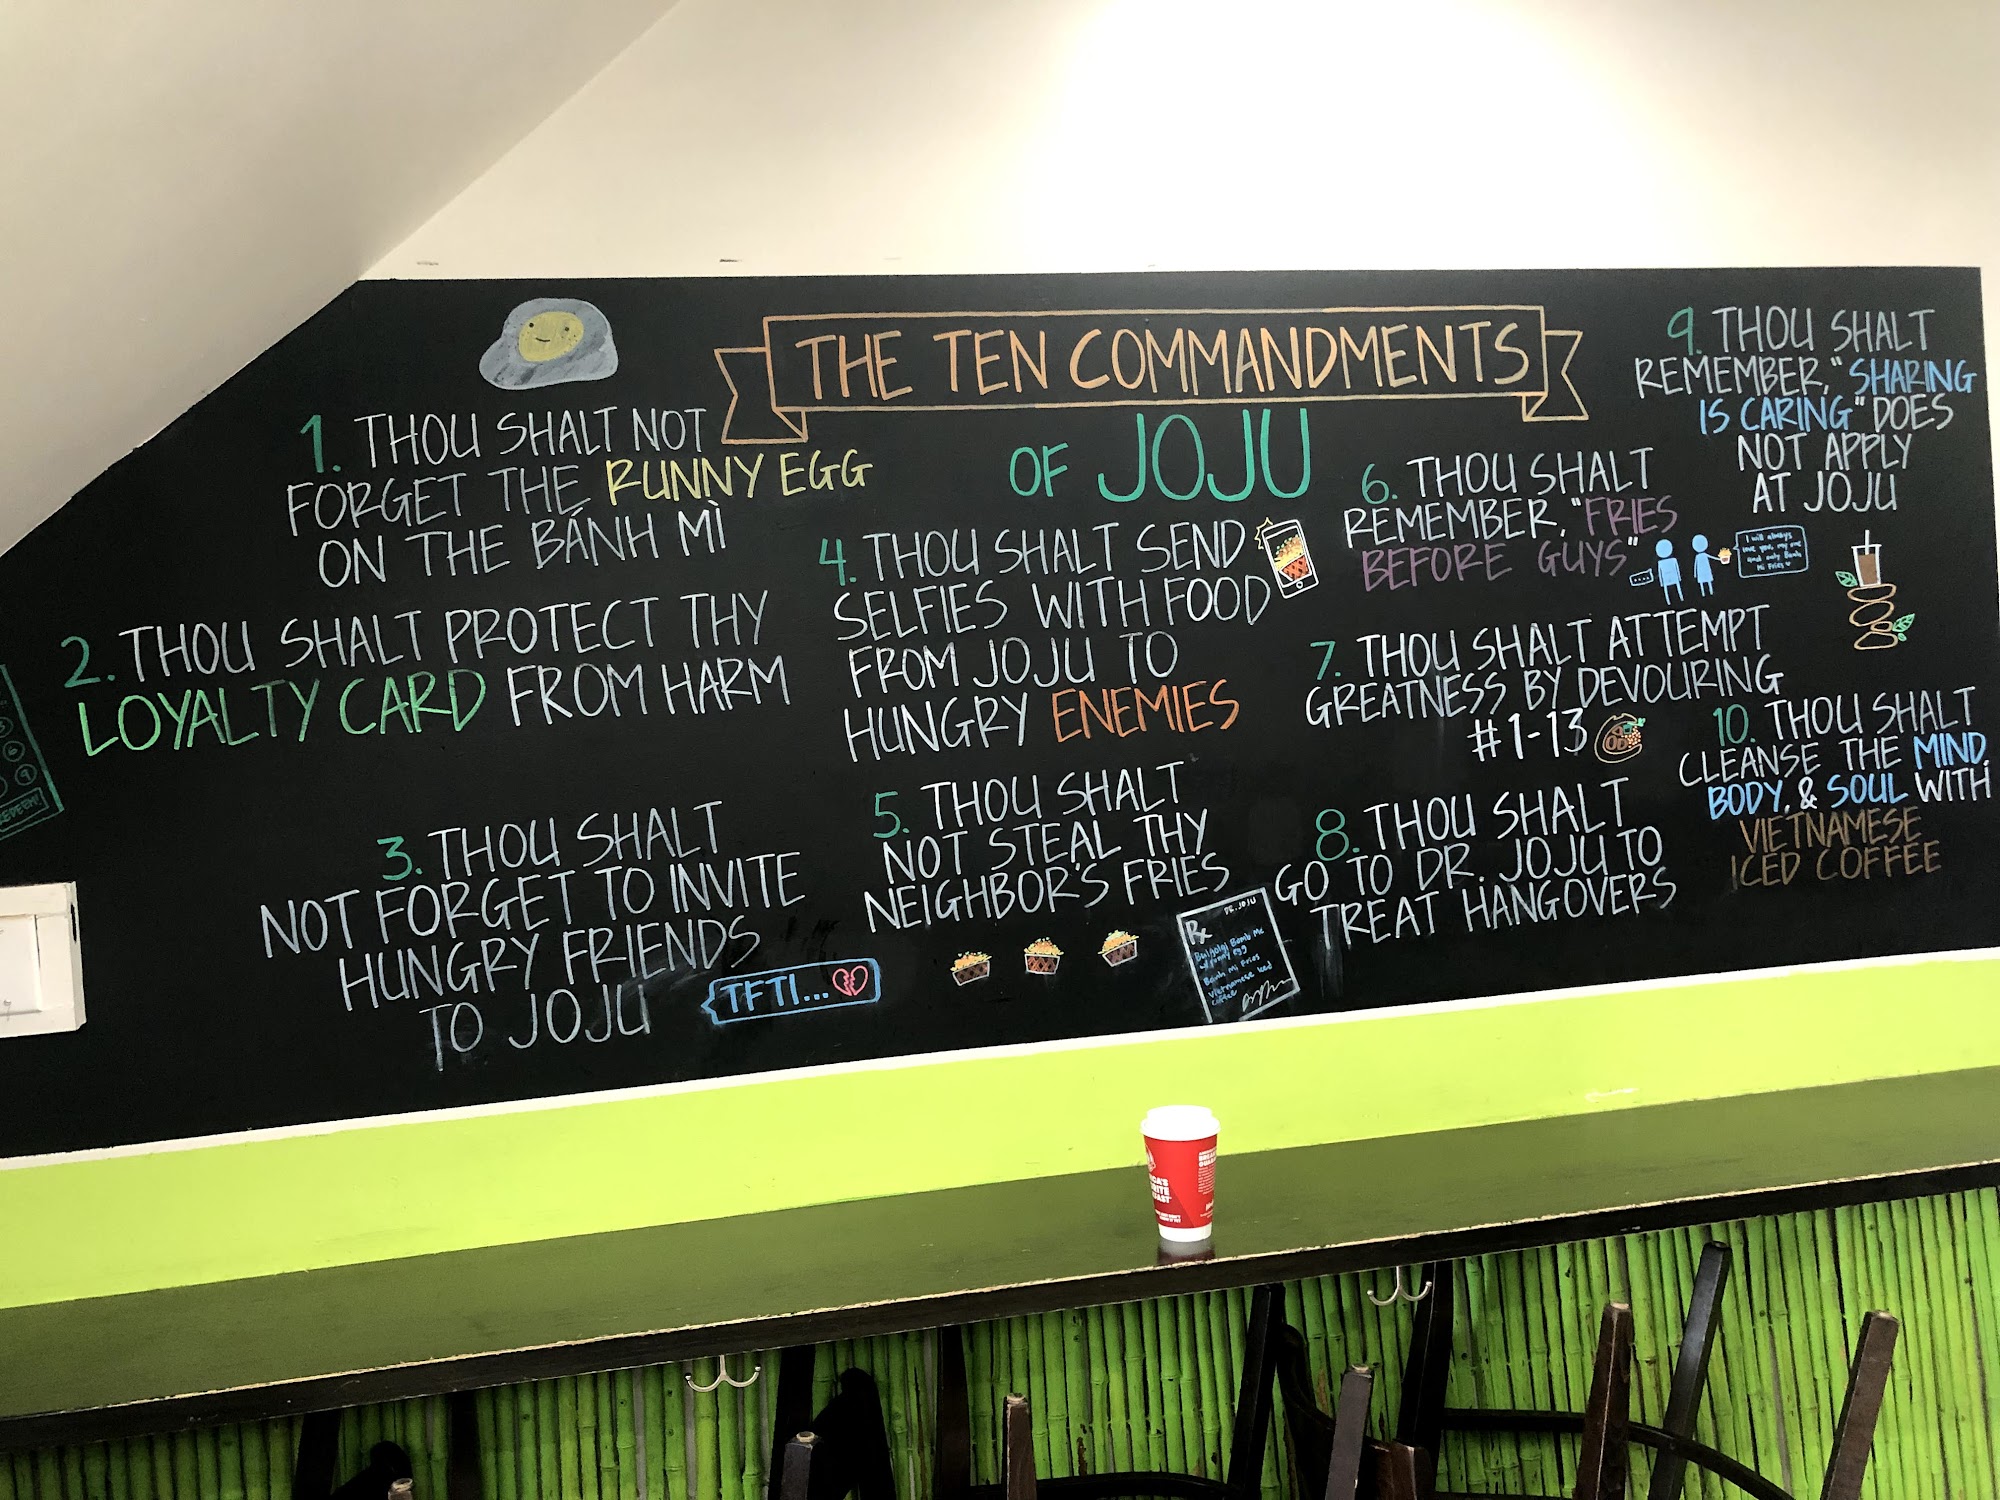 THE TEN COMMANDMENTS
OF JOJU
1. THOU SHALT NOT
FORGET THE RUNNY EGG
ON THE BÁNH MÌ
2. THOU SHALT PROTECT THY
LOYALTY CARD FROM HARM
3. THOU SHALT
NOT FORGET TO INVITE
HUNGRY FRIENDS
TO JOJU
TFTI...
4. THOU SHALT SEND
SELFIES WITH FOOD
FROM JOJU TO
HUNGRY ENEMIES
5. THOU SHALT
NOT STEAL THY
NEIGHBOR'S FRIES
6. THOU SHALT
REMEMBER, "FRIES
BEFORE GUYS"
....
I will always
love you, my one
and only Banh
Mi Fries
7. THOU SHALT ATTEMPT
GREATNESS BY DEVOURING
#1-13
8. THOU SHALT
GO TO DR. JOJU TO
TREAT HANGOVERS
DR. JOJU
Rx
Bulgolgi Banh Mi
w/runny egg
Banh Mi Fries
Vietnamese Iced
Coffee
9. THOU SHALT
REMEMBER, "SHARING
IS CARING" DOES
NOT APPLY
AT JOJU
10. THOU SHALT
CLEANSE THE MIND,
BODY, & SOUL WITH
VIETNAMESE
ICED COFFEE
6
9
REDEEM!